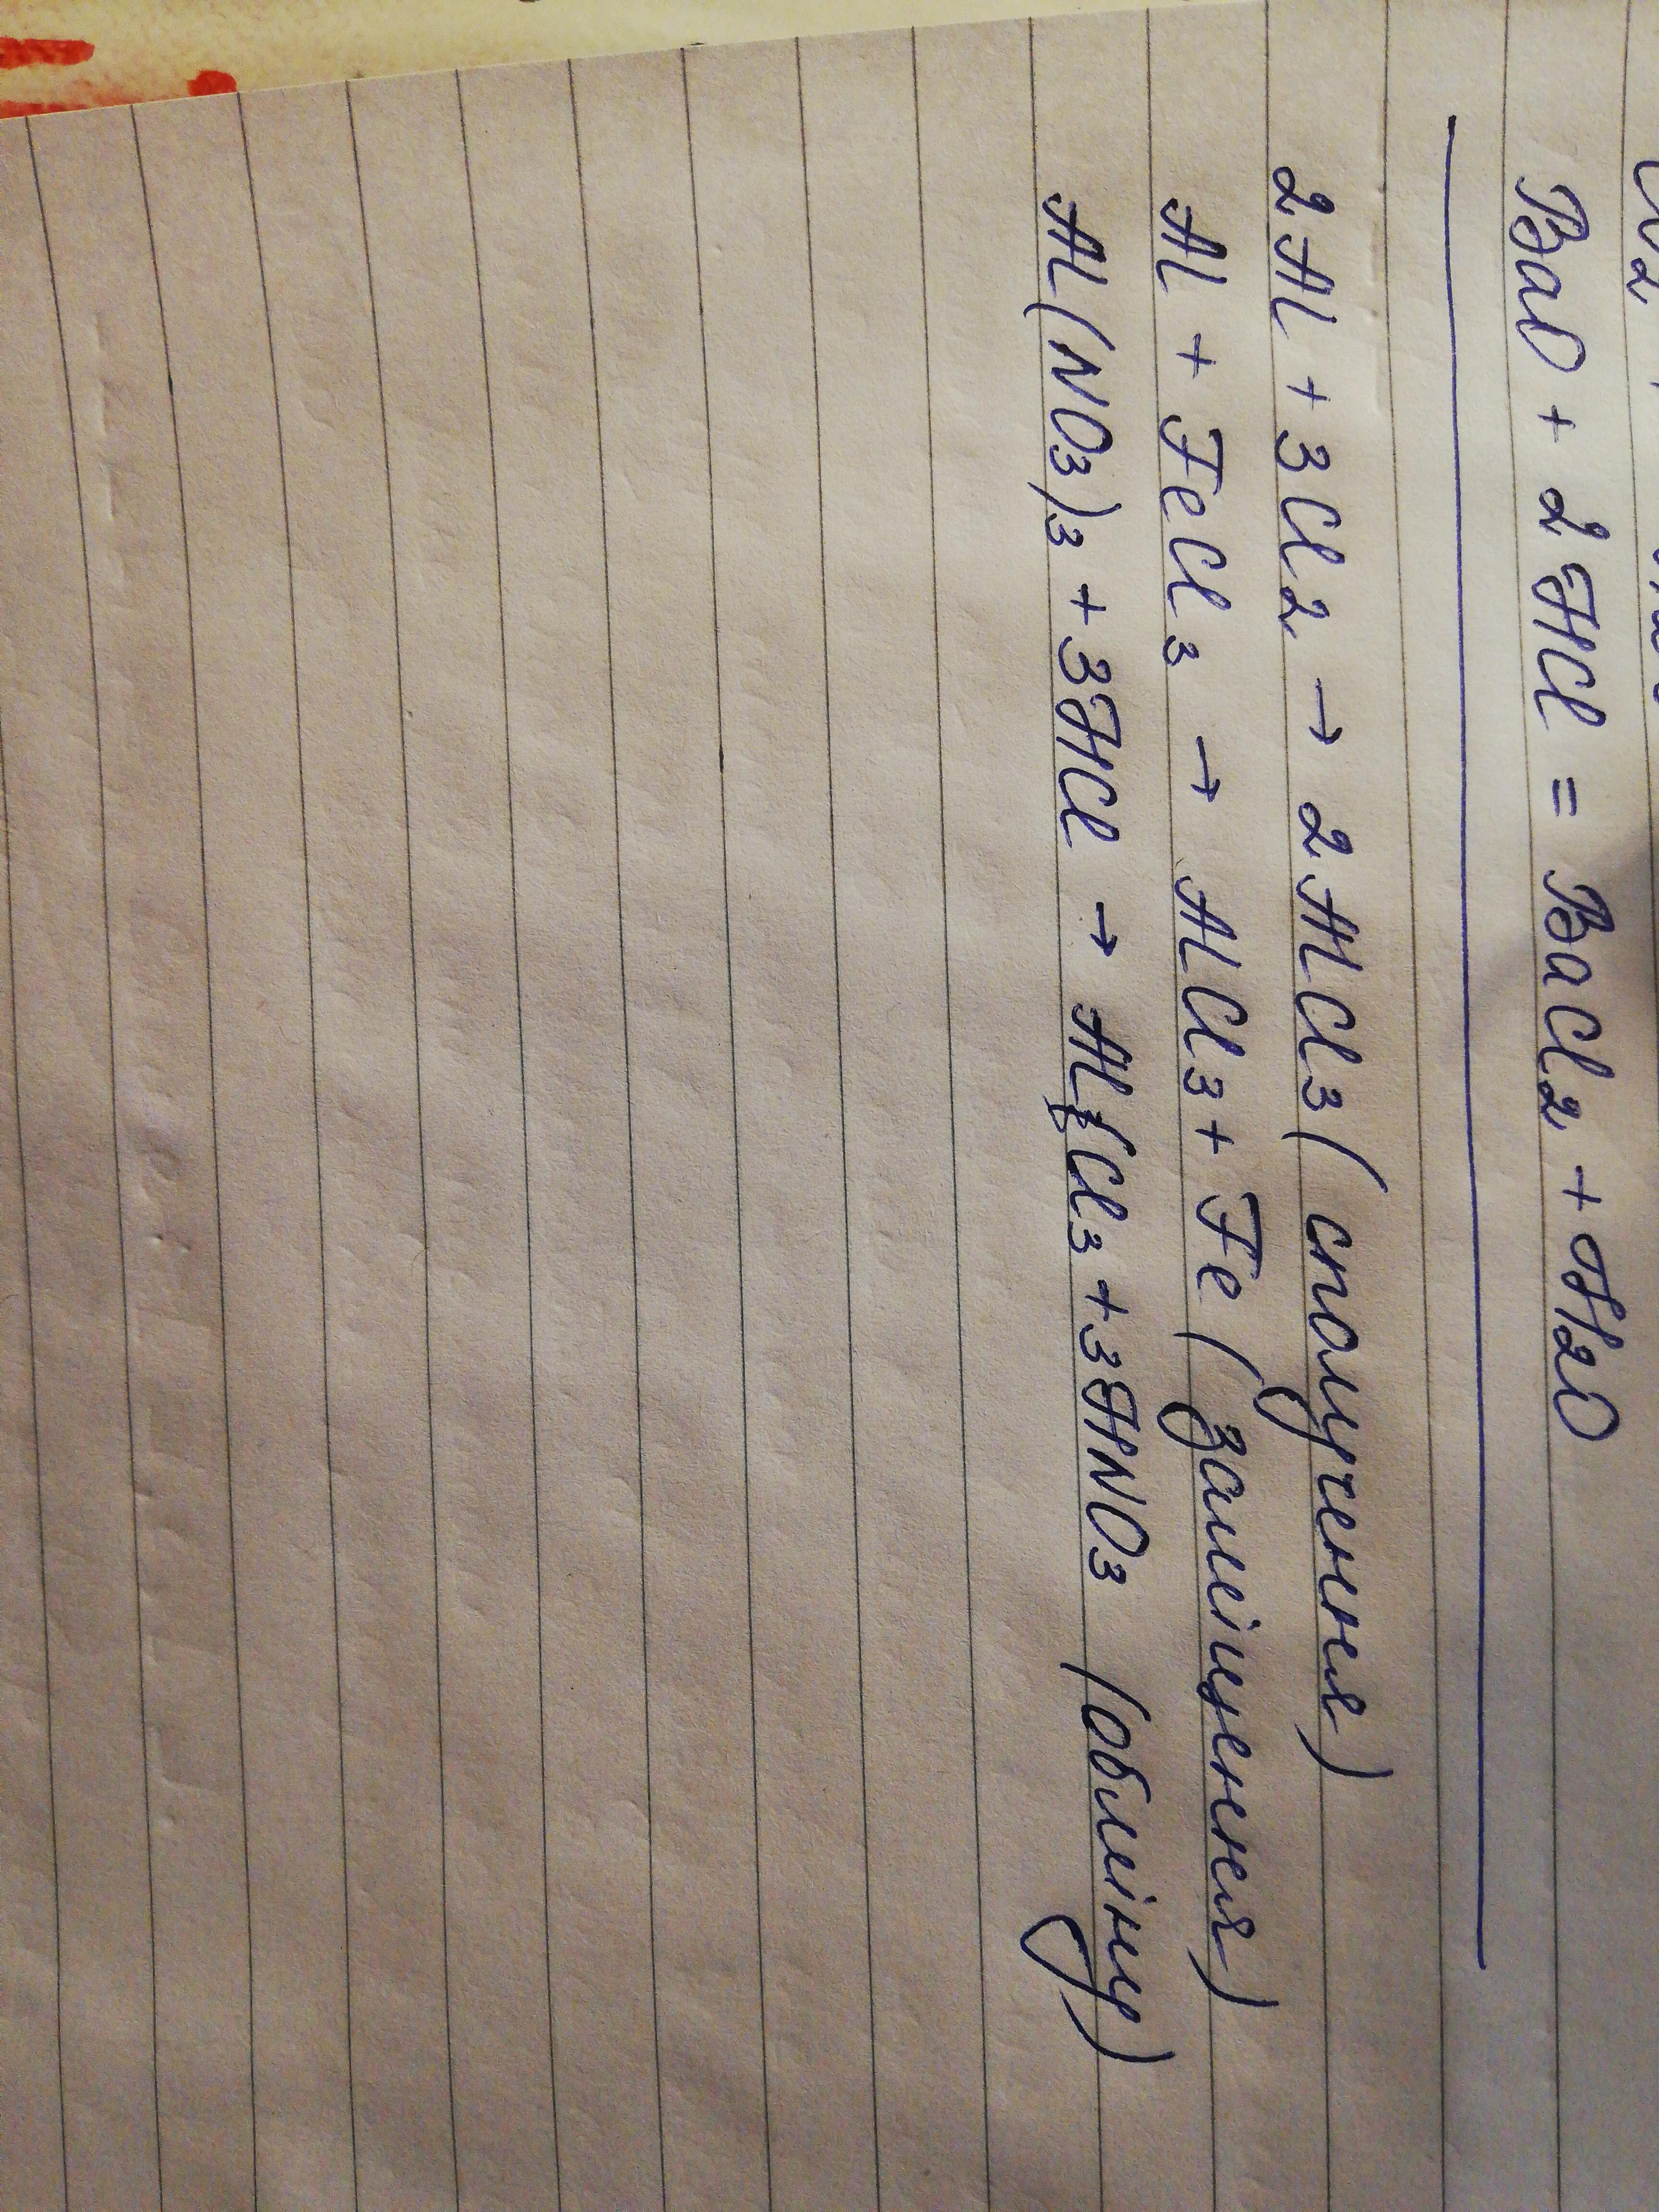 BaO + 2HCl = BaCl2 + H2O
2Al + 3Cl2 → 2AlCl3 (сполучення)
Al + FeCl3 → AlCl3 + Fe (заміщення)
Al(NO3)3 + 3HCl → AlCl3 + 3HNO3 (обміну)